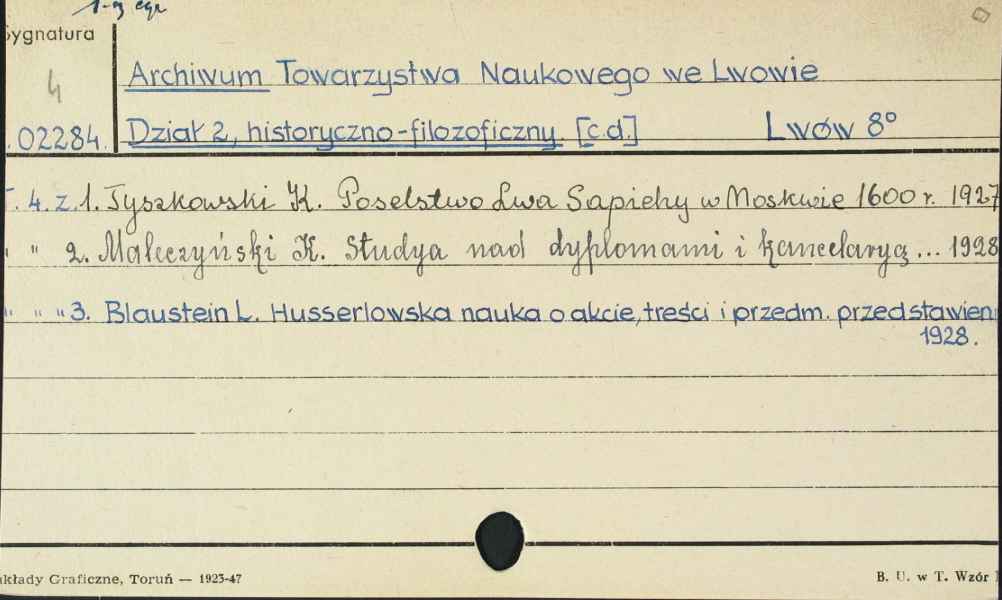 1-3 egz
Sygnatura
4
02284.
Archiwum Towarzystwa Naukowego we Lwowie
Dział 2, historyczno-filozoficzny. [c.d.] Lwów 8°
T. 4. z. 1. Tyszkowski K. Poselstwo Lwa Sapiehy w Moskwie 1600 r. 1927
" " 2. Maleczyński K. Studya nad dyplomami i kancelaryą... 1928
" " " 3. Blaustein L. Husserlowska nauka o akcie, treści i przedm. przedstawien
1928.
akłady Graficzne, Toruń — 1923-47
B. U. w T. Wzór